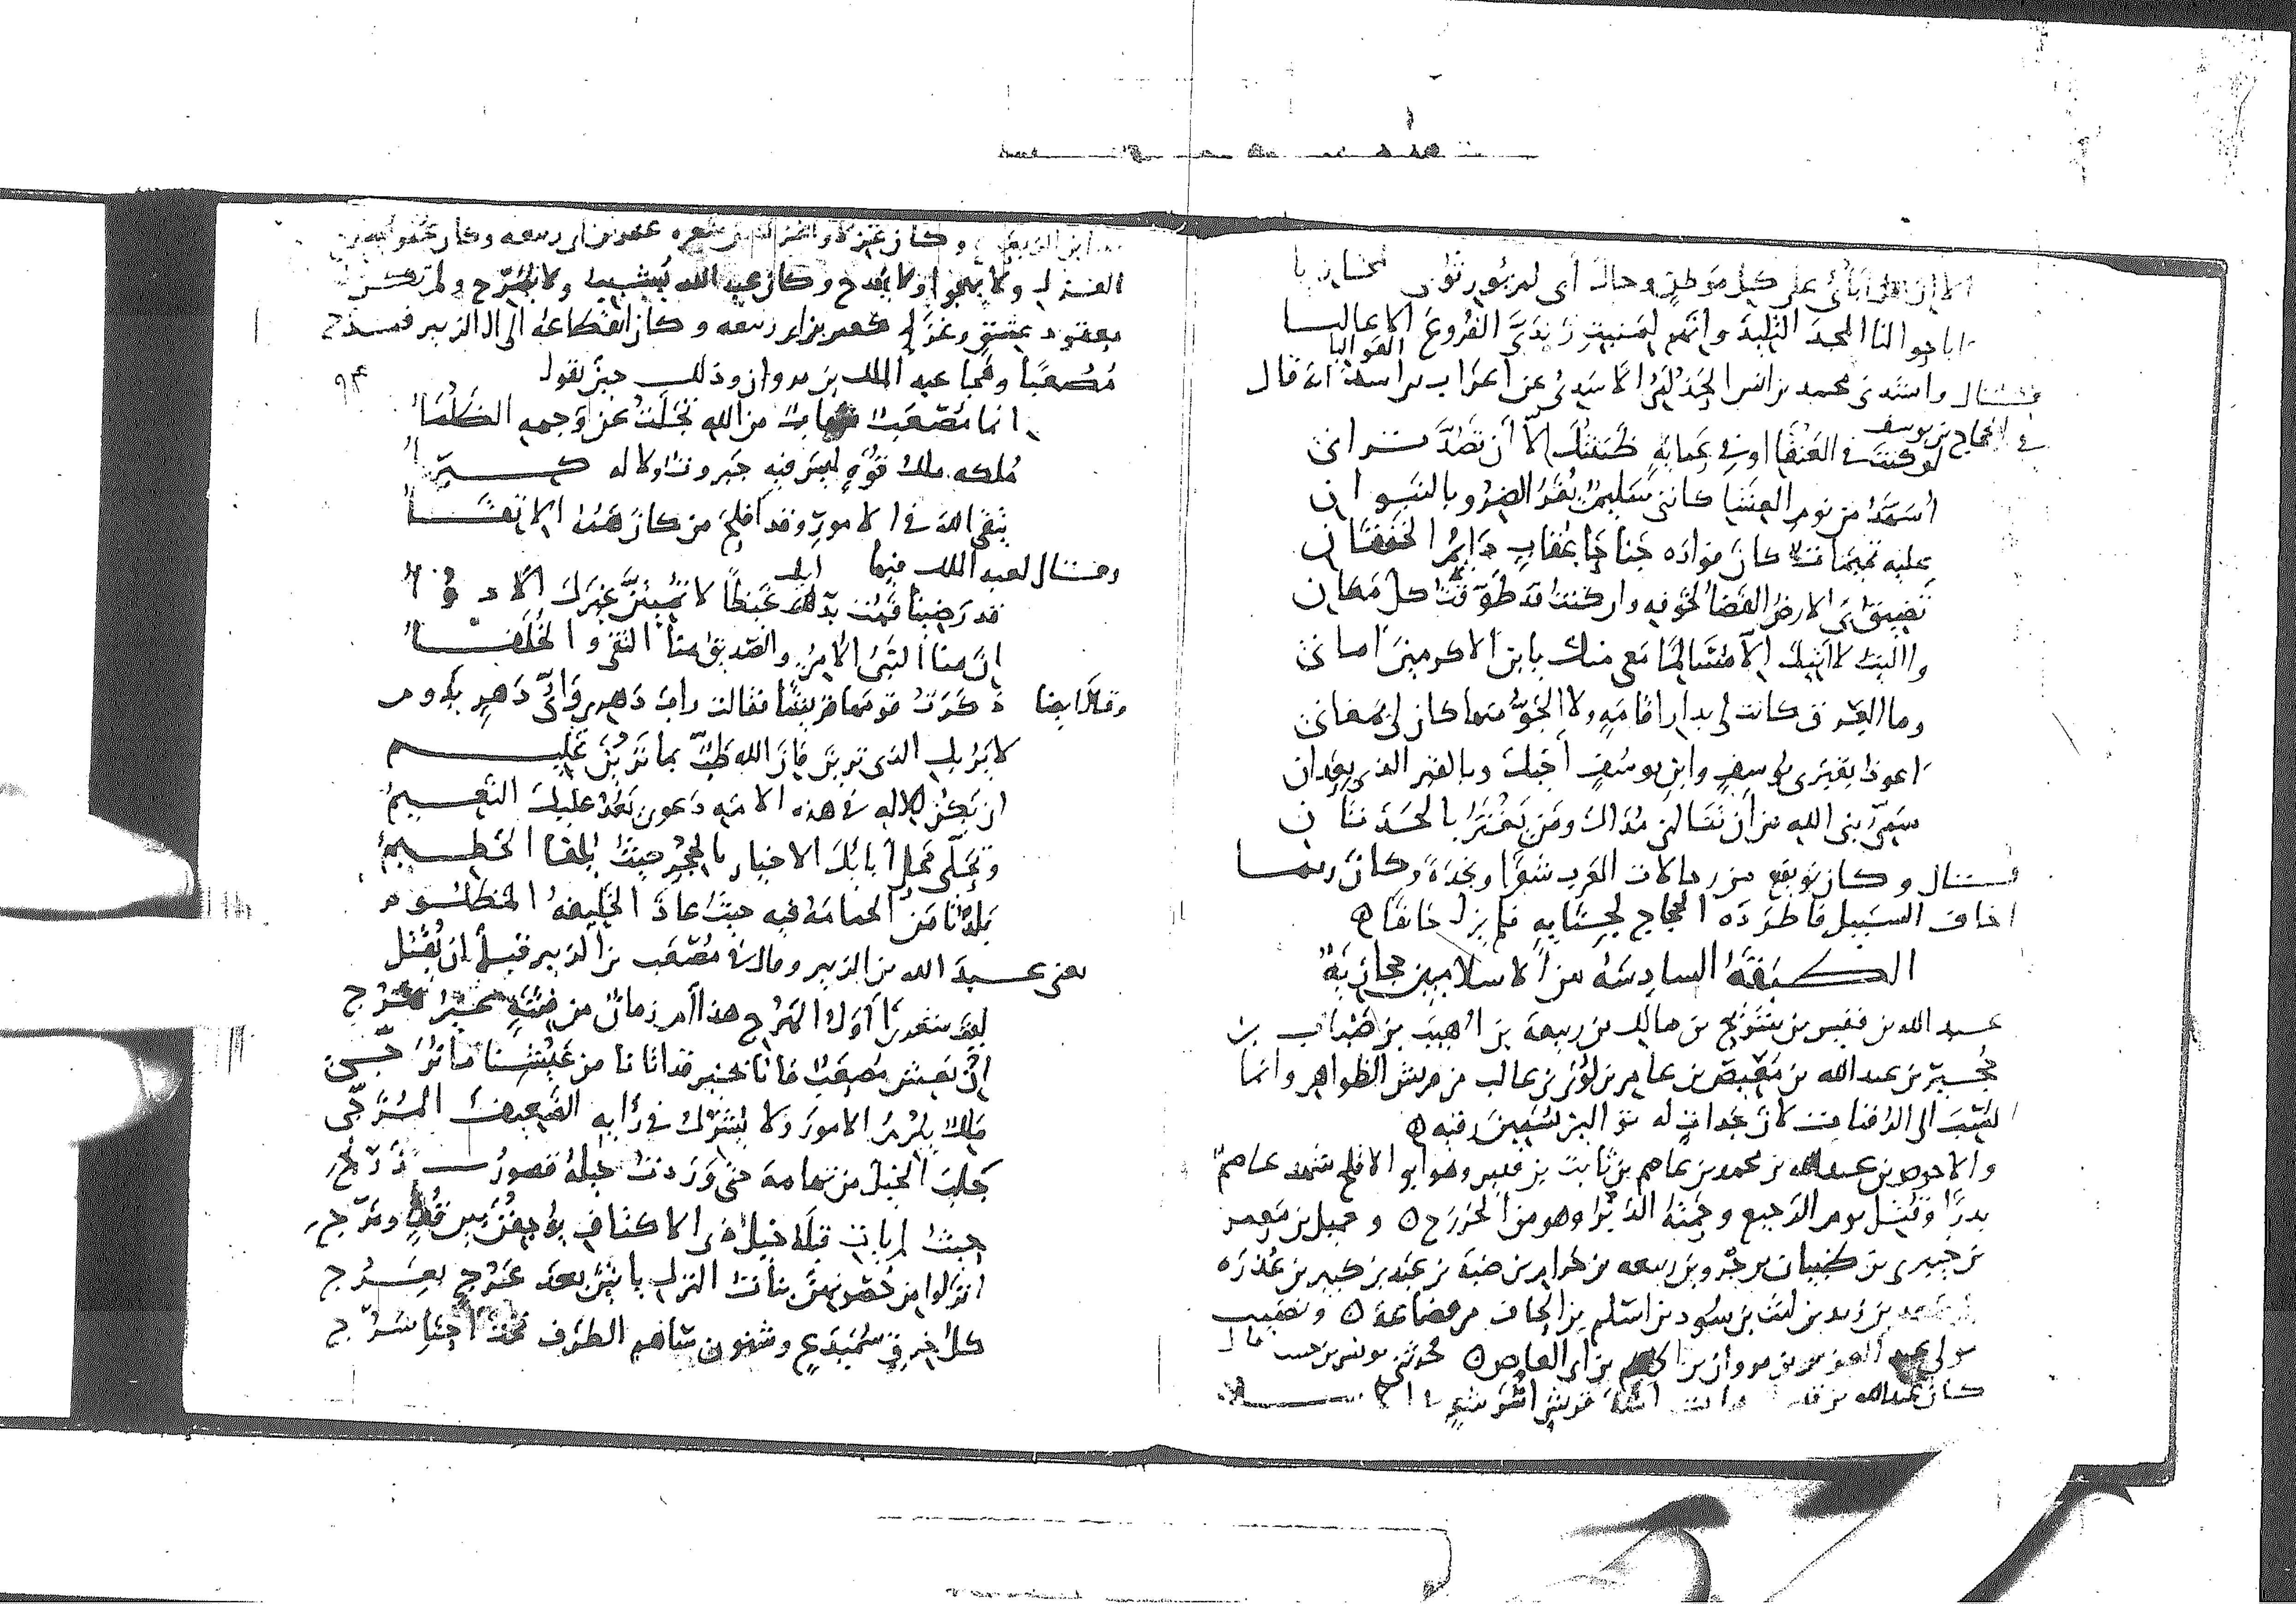 الا ان هل اناى على كل موطن وحال أى لم يورثونى
اباحوا لنا المجد التليد وانهم لمنبت زند الفروع الاعاليا
العواليا
قال وانشدنى محمد بن انس الحذلمى الاسدى عن اعراب بنى اسد انه قال
فى الحجاج بن يوسف
لو كنت فى العنقا او فى عماية ظننتك الا أن تصد ترانى
من نوم العشا كاننى سليم الضرو بالنبوان
عليه تميمات كان فواده جناحا عقاب دايم الخفقان
تضيق بى الارض الفضا لخوفه وان كنت قد طوفت كل مكان
واليت لا اتيك الا مسالما معى منك يا بن الاكرمين امانى
وما العرق كانت لى بدار اقامة ولا الجو منها كان لى بمغانى
اعوذ بقبرى يوسف وابن يوسف أخيك وبالقبر الذى بعدان
سمى نبى الله من أن تنالنى يداك ومن يغتر بالحدثان
قال وكان نويفع من رجالات العرب شعرا ونجدة وكان ربما
اخاف السبيل فاطرده الحجاج لجناية فلم يزل خائفا
الطبقة السادسة من الاسلاميين حجازية
عبد الله بن قيس بن شريح بن مالك بن ربيعة بن اهيب بن ضباب بن
حجير بن عبد الله بن معيص بن عامر بن لؤى بن غالب من قريش الظواهر وانما
نسب الى الرقيات لان جدات له توالين يسمين رقية
والاحوص بن عبد الله بن محمد بن عاصم بن ثابت بن قيس وهو ابو الاقلح شهد عاصم
بدرا وقتل يوم الرجيع وحمته الدبر وهو من الخزرج وجميل بن معمر
بن خيبرى بن ظبيان بن حن وبن ربيعه بن حرام بن ضبة بن عبد بن كبير بن عذره
بن سعد بن زيد بن ليث بن سود بن اسلم بن الحاف من قضاعة ونصيب
مولى عبد العزيز بن مروان بن الحكم بن ابى العاص حدثنى يونس بن حبيب قال
كان عبد الله بن قيس الرقيات اشد قريش اسر شعر
وكان غزلا واغزل من شعره عمر بن ابى ربيعه وكان عمر
الغزل ولا يهجوا ولا يمدح وكان عبد الله يشبب ولا يصرح ولم يكن
معقود عشق وغزل كعمر بن ابى ربيعه وكان انقطاعه الى ال الزبير فمدح
مصعبا وهجا عبد الملك بن مروان وذلك حين يقول
٩٤
انما مصعب شهاب من الله تجلت عن وجهه الظلماء
ملكه ملك قوة ليس فيه جبروت ولا له كبرياء
يتقى الله فى الامور وقد افلح من كان همه الاتقاء
وقال لعبد الملك فيها
قد رضينا فمت بدائك غيظا لا تميتن غيرك الادواء
ان منا النبى الامى والصديق منا التقى والخلفاء
وقال ايضا ذكرت قومها قريشا فقالت راب دهر واى دهر يدوم
لا يربك الذى تربن فان الله طب بما تربن عليم
ان يكن للاله فى هذه الامة دعوى يعد عليك النعيم
وتحلى محل آبائك الاخيار بالحجر حيث يلقا الحطيم
بلد تامن الحمامة فيه حيث عاذ الخليفة المظلوم
يعنى عبد الله بن الزبير وقال فى مصعب بن الزبير قبل ان يقتل
ليت شعرى أاول الهرج هذا ام زمان من فتنة غير هرج
ان يعش مصعب فانا بخير قد اتانا من عيشنا ما نرجى
ملك يبرم الامور ولا يشرك فى رايه الضعيف المزجى
جلب الخيل من تهامة حتى وردت خيله قصور زرنج
حيث لم يات قبله خيل ذى الاكتاف يوجفن بين قف ومرج
انزلوا من حصونهن بنات الترك ياتين بعد عرج بعرج
كل خرق سميدع وشنون ساهم الطرف تحت احنا سرج